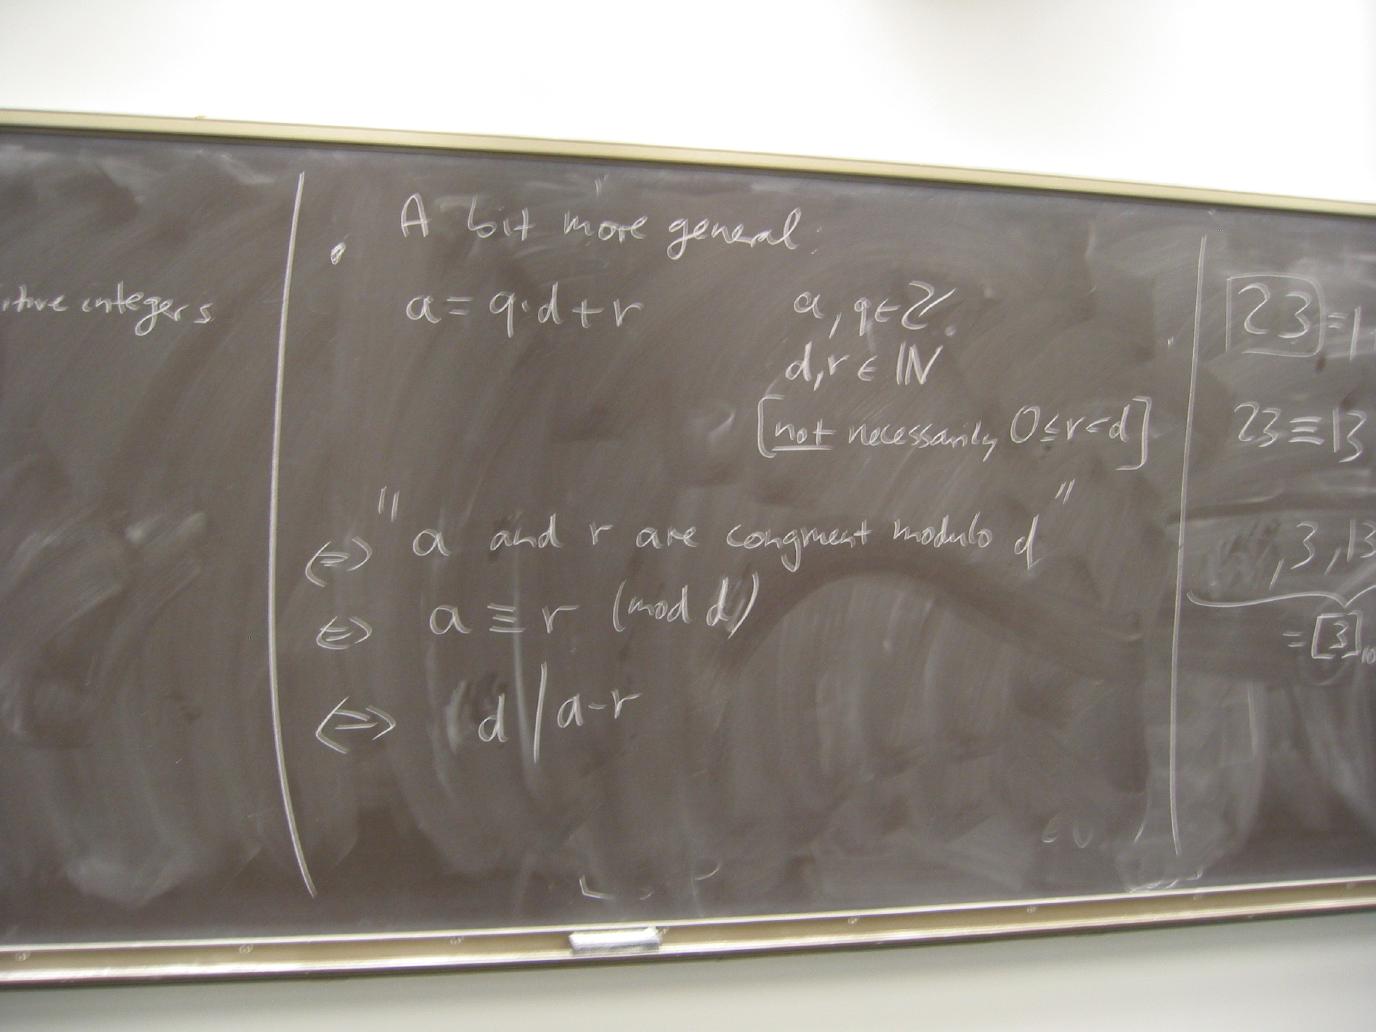 itive integers
A bit more general:
a = q·d + r
a, q ∈ ℤ
d, r ∈ ℕ
[not necessarily 0 ≤ r < d]
⇔ "a and r are congruent modulo d"
⇔ a ≡ r (mod d)
⇔ d | a - r
23 = 1
23 ≡ 13
, 3, 13
= [3]10